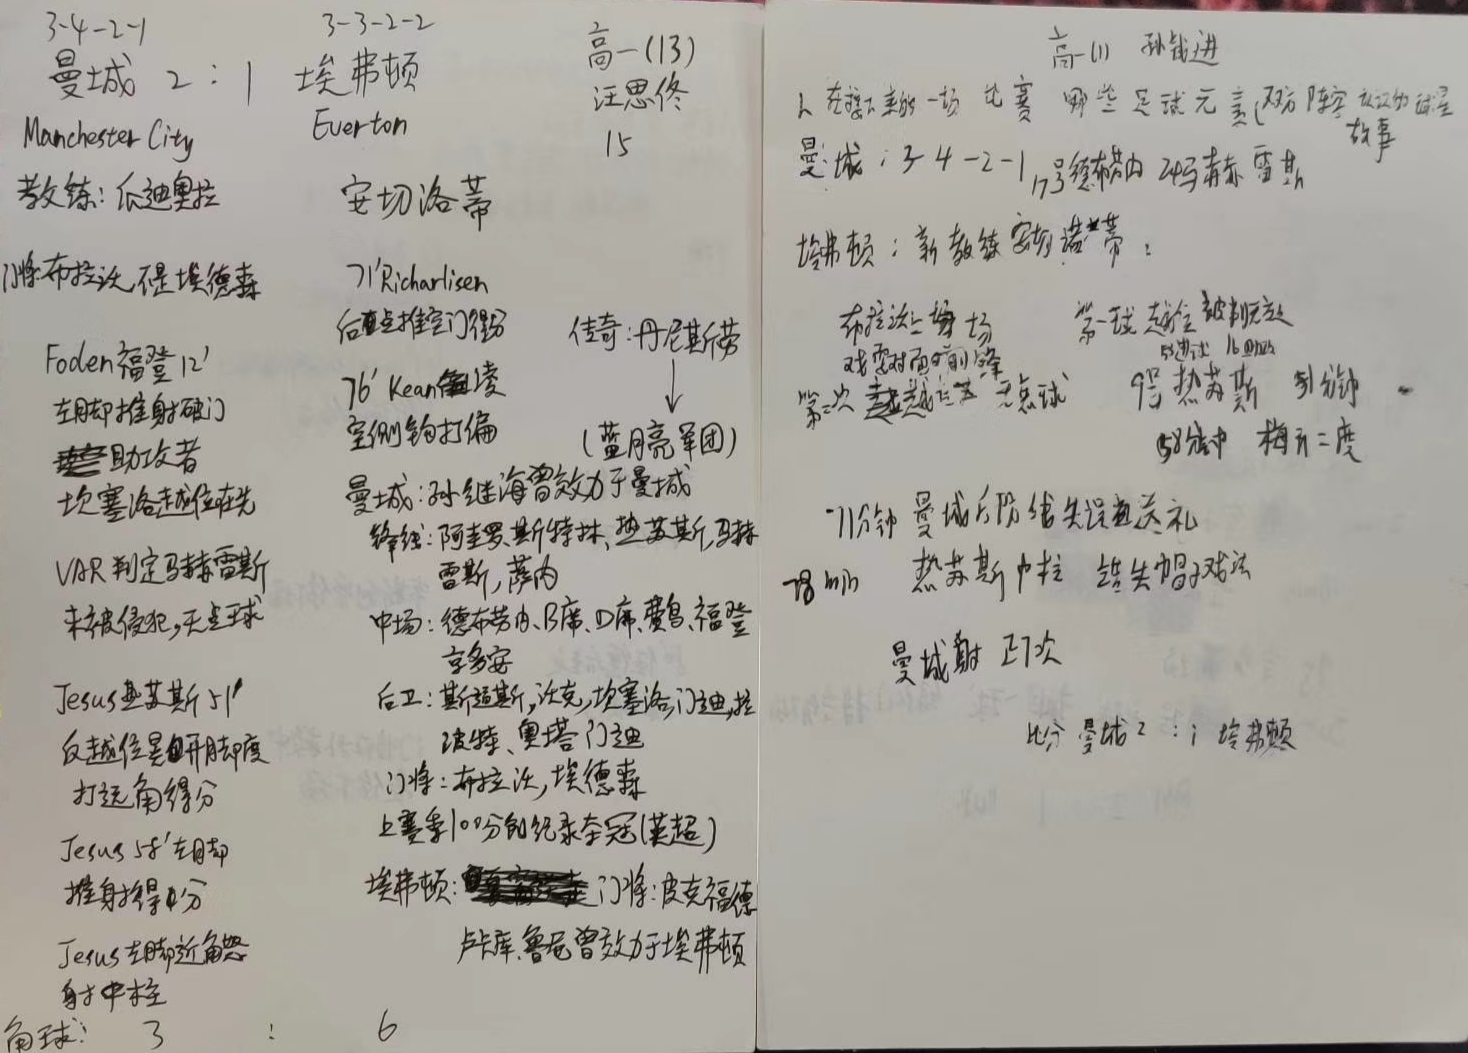 3-4-2-1
3-3-2-2
高一(13)
曼城 2 : 1 埃弗顿
汪思佟
Manchester City
Everton
15
教练: 瓜迪奥拉
安切洛蒂
门将:布拉沃,不是埃德森
71'Richarlisen
后点推空门得分
传奇:丹尼斯劳
Foden福登12'
左脚推射破门
助攻者
坎塞洛越位在先
76' Kean凌
空侧钩打偏
(蓝月亮军团)
曼城:孙继海曾效力于曼城
锋线:阿圭罗、斯特林、热苏斯,马赫
雷斯,萨内
VAR判定马赫雷斯
未被侵犯,无点球
中场:德布劳内、B席、D席、费鸟、福登
京多安
Jesus热苏斯51'
反越位晃开脚度
打远角得分
后卫:斯通斯,沃克,坎塞洛,门迪,拉
波特、奥塔门迪
门将:布拉沃,埃德森
上赛季100分的纪录夺冠(英超)
Jesus 58'左脚
推射得分
埃弗顿: 门将:皮克福德
卢卡库、鲁尼曾效力于埃弗顿
Jesus左脚近角怒
射中柱
角球: 3 : 6
高一(1) 孙钱进
1、在接下来的一场比赛 哪些足球元素(双方阵容 认识的球星
故事
曼城:3-4-2-1 17号德布劳内 24号 赫雷斯
埃弗顿:新教练安切诺蒂:
布拉沃上场
第一球 越位 被判无效
第二次 越位 无点球
9号热苏斯 51分钟
58分钟 梅开二度
71分钟 曼城后防线失误送礼
78min 热苏斯中柱 错失帽子戏法
曼城射正7次
比分 曼城2:1 埃弗顿